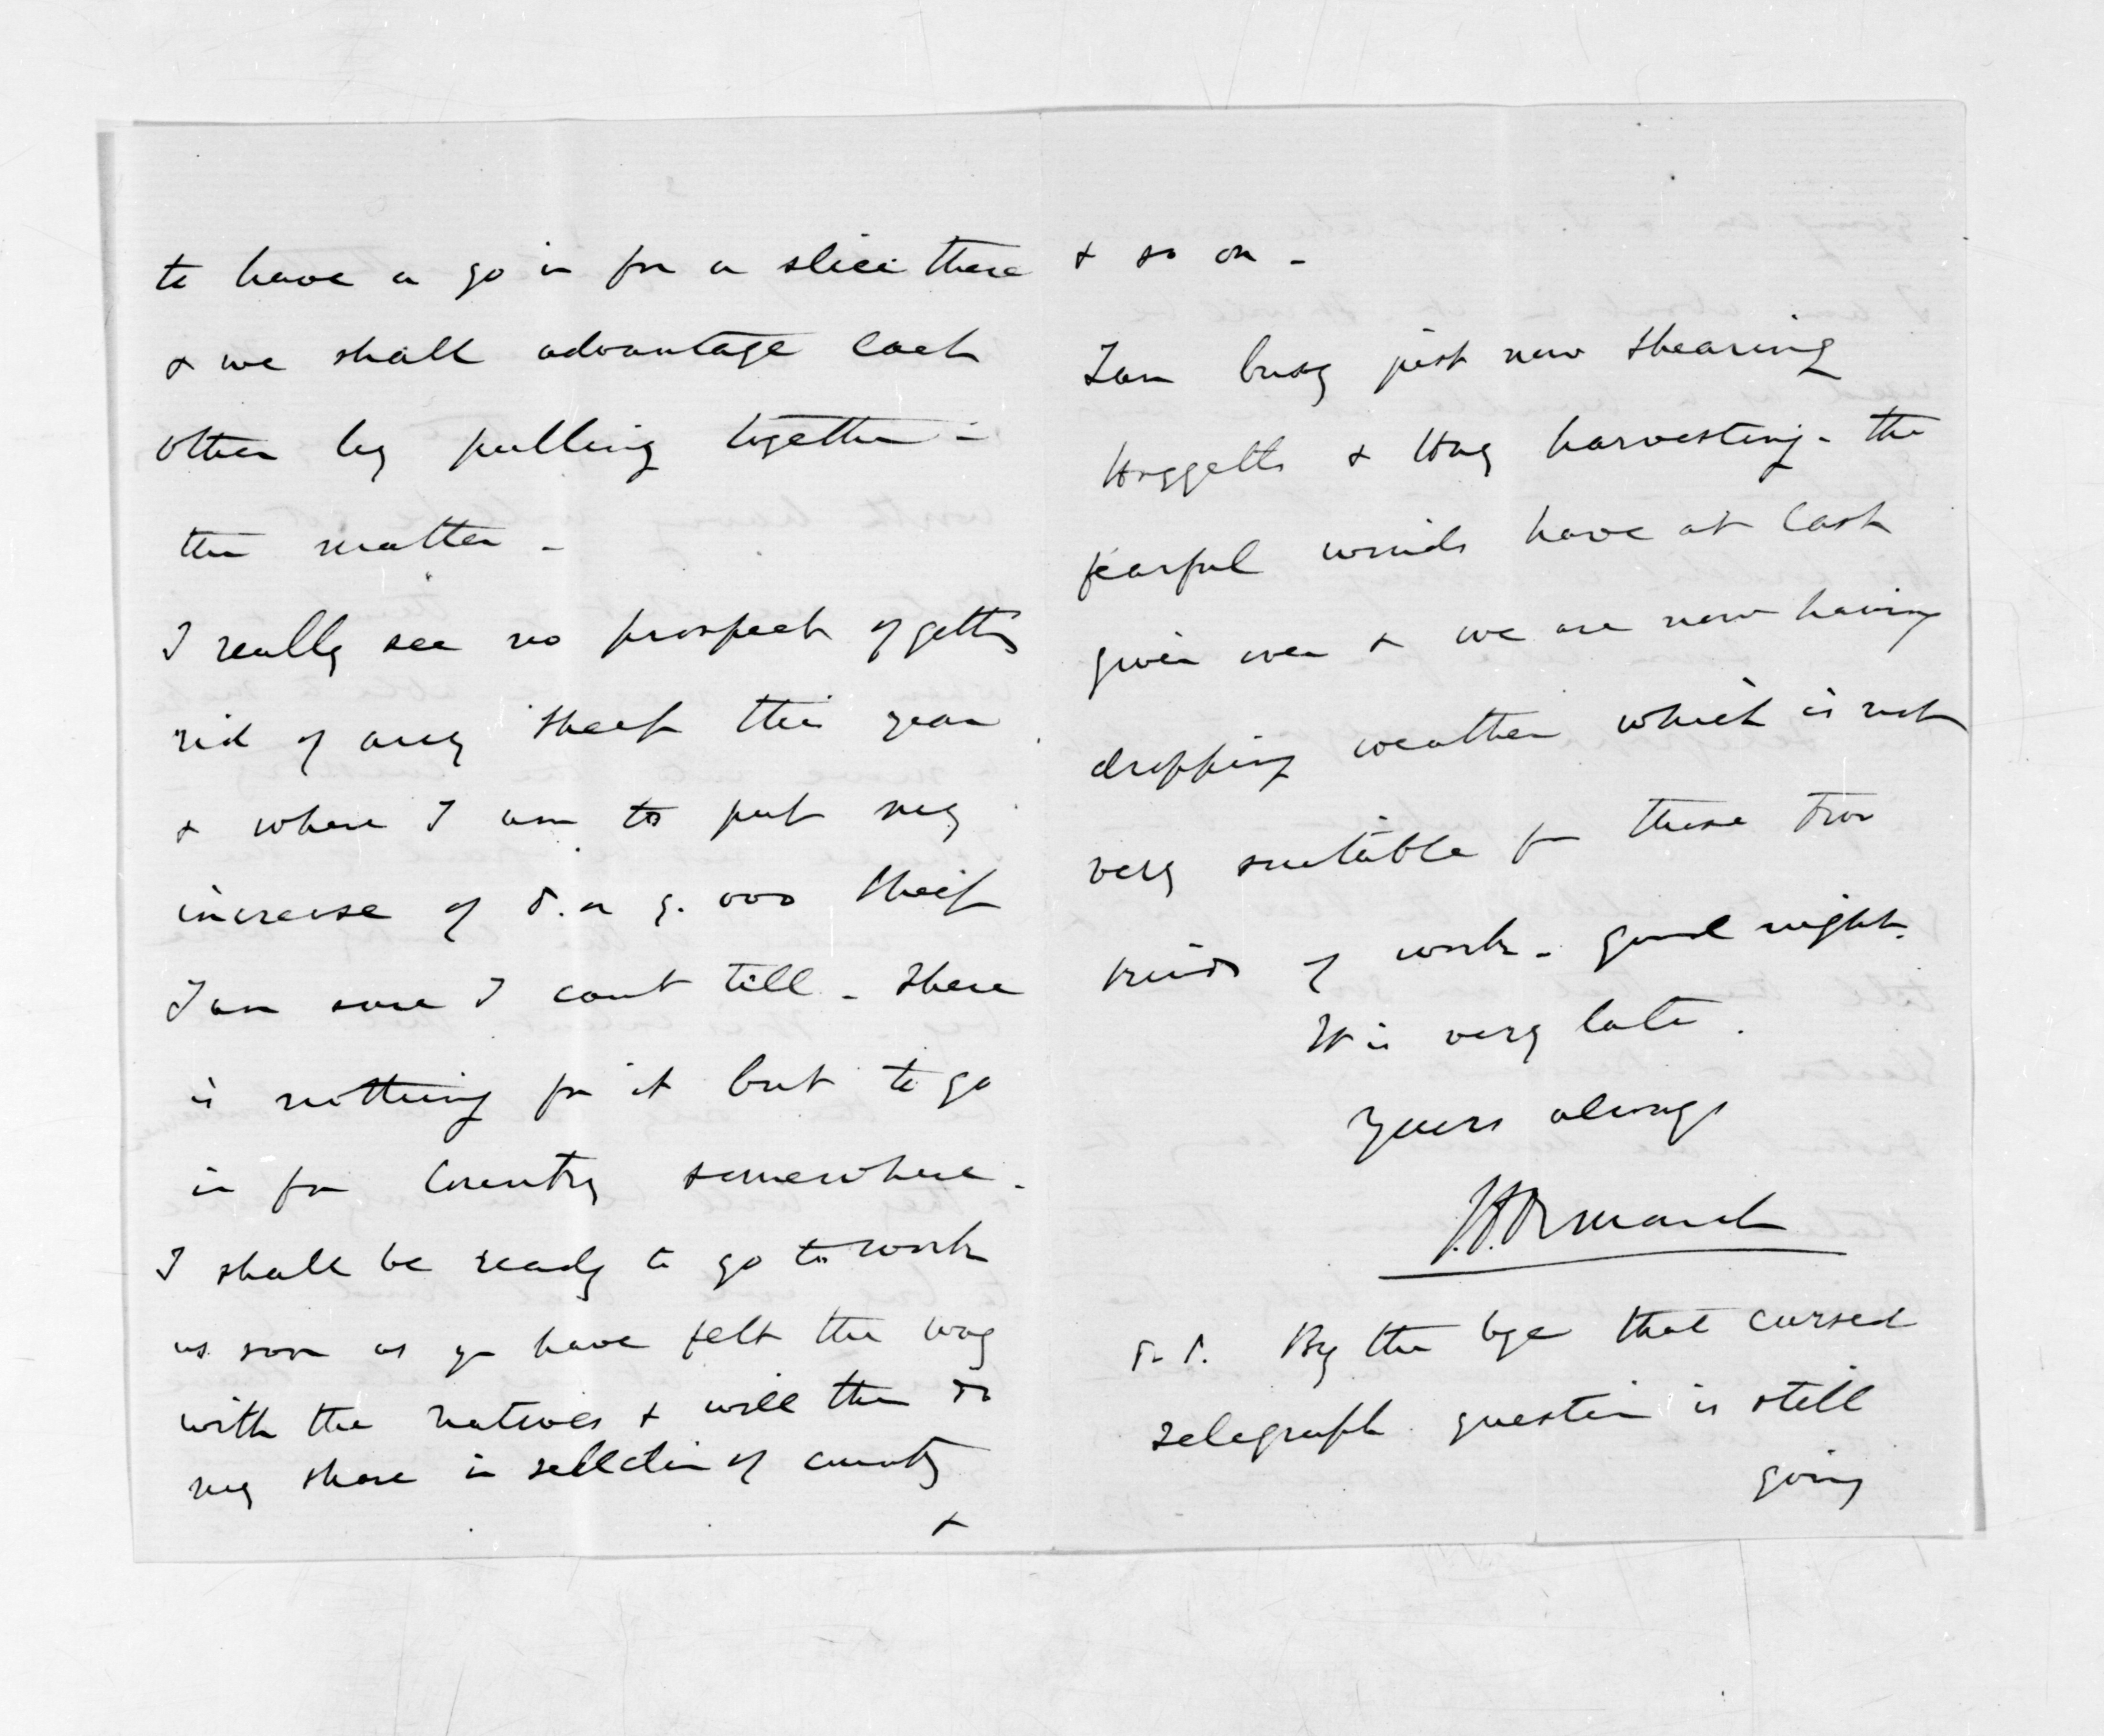 to have a go in for a slice there
& we shall advantage each
other by pulling together in
the matter -
I really see no prospect of getting
rid of any sheep this year
& where I am to put my
increase of 8. or 9. 000 sheep
I am sure I cant tell - there
is nothing for it but to go
in for Country somewhere -
I shall be ready to go to work
as soon as you have felt the way
with the natives & will then do
my share in selection of country
&
& so on -
I am busy just now shearing
Hoggetts & Hay harvesting - the
fearful winds have at last
given over & we are now having
dropping weather which is not
very suitable for those two
kinds of work - good night.
It is very late.
Yours always
J. D. Ormond
P. S. By the bye that cursed
telegraph question is still
going